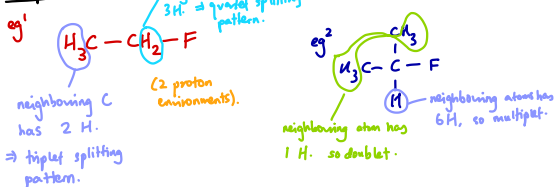 eg¹
3H ⇒ quartet splitting
pattern.
H₃C – CH₂ – F
(2 proton
environments).
neighbouring C
has 2 H.
⇒ triplet splitting
pattern.
eg²
CH₃
H₃C – C – F
H
neighbouring atoms has
6H, so multiplet.
neighbouring atom has
1 H. so doublet.